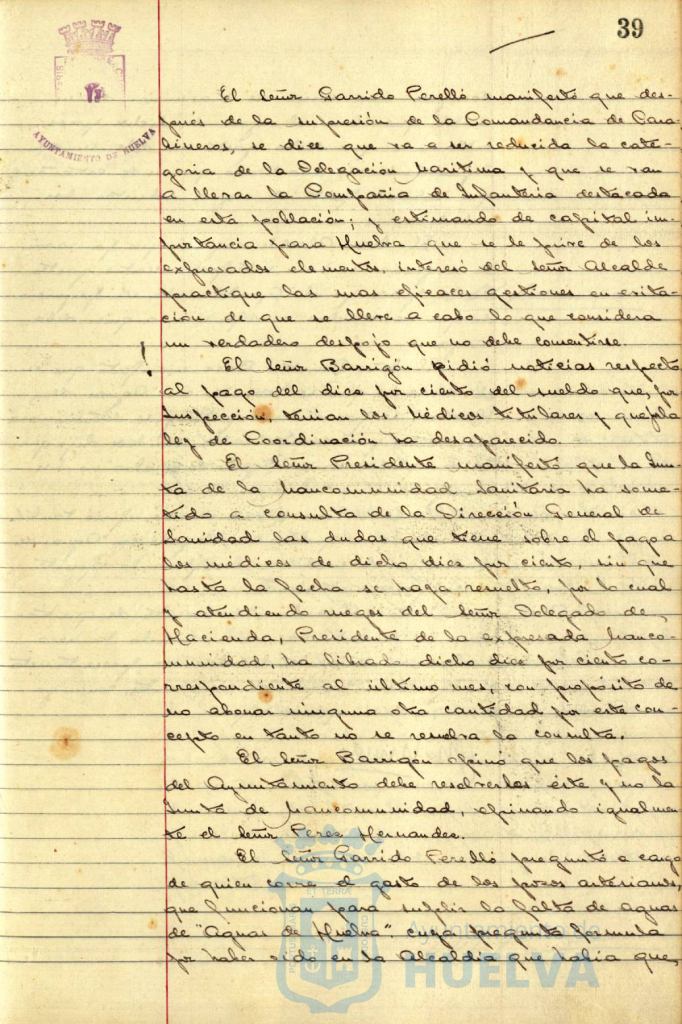 39
AYUNTAMIENTO DE HUELVA
El Señor Garrido Perelló manifestó que des-
pués de la supresión de la Comandancia de Cara-
bineros, se dice que va a ser reducida la cate-
goria de la Delegación Maritima y que se van
a llevar la Compañia de Infanteria destacada
en esta población; y estimando de capital im-
portancia para Huelva que se le prive de los
expresados elementos, interesó del Señor Alcalde
practique las mas eficaces gestiones en evita-
ción de que se lleve a cabo lo que considera
un verdadero despojo que no debe consentirse.
!
El Señor Barrigón pidió noticias respecto
al pago del diez por ciento del sueldo que, por
Inspección, tenian los Médicos titulares y que la
ley de Coordinación ha desaparecido.
El Señor Presidente manifestó que la Jun-
ta de la Mancomunidad Sanitaria ha some-
tido a consulta de la Dirección General de
Sanidad las dudas que tiene sobre el pago a
los médicos de dicho diez por ciento, sin que
hasta la fecha se haya resuelto, por lo cual
y atendiendo ruegos del Señor Delegado de
Hacienda, Presidente de la expresada Manco-
munidad, ha librado dicho diez por ciento co-
rrespondiente al último mes, con propósito de
no abonar ninguna otra cantidad por este con-
cepto en tanto no se resuelva la consulta.
El Señor Barrigón opinó que los pagos
del Ayuntamiento debe resolverlos éste y no la
Junta de Mancomunidad, opinando igualmen-
te el Señor Perez Hernandez.
El Señor Garrido Perelló preguntó a cargo
de quien corre el gasto de los pozos artesianos,
que funcionan para suplir la falta de aguas
de "Aguas de Huelva", cuya pregunta formula
por haber oido en la Alcaldia que habia que,
HUELVA